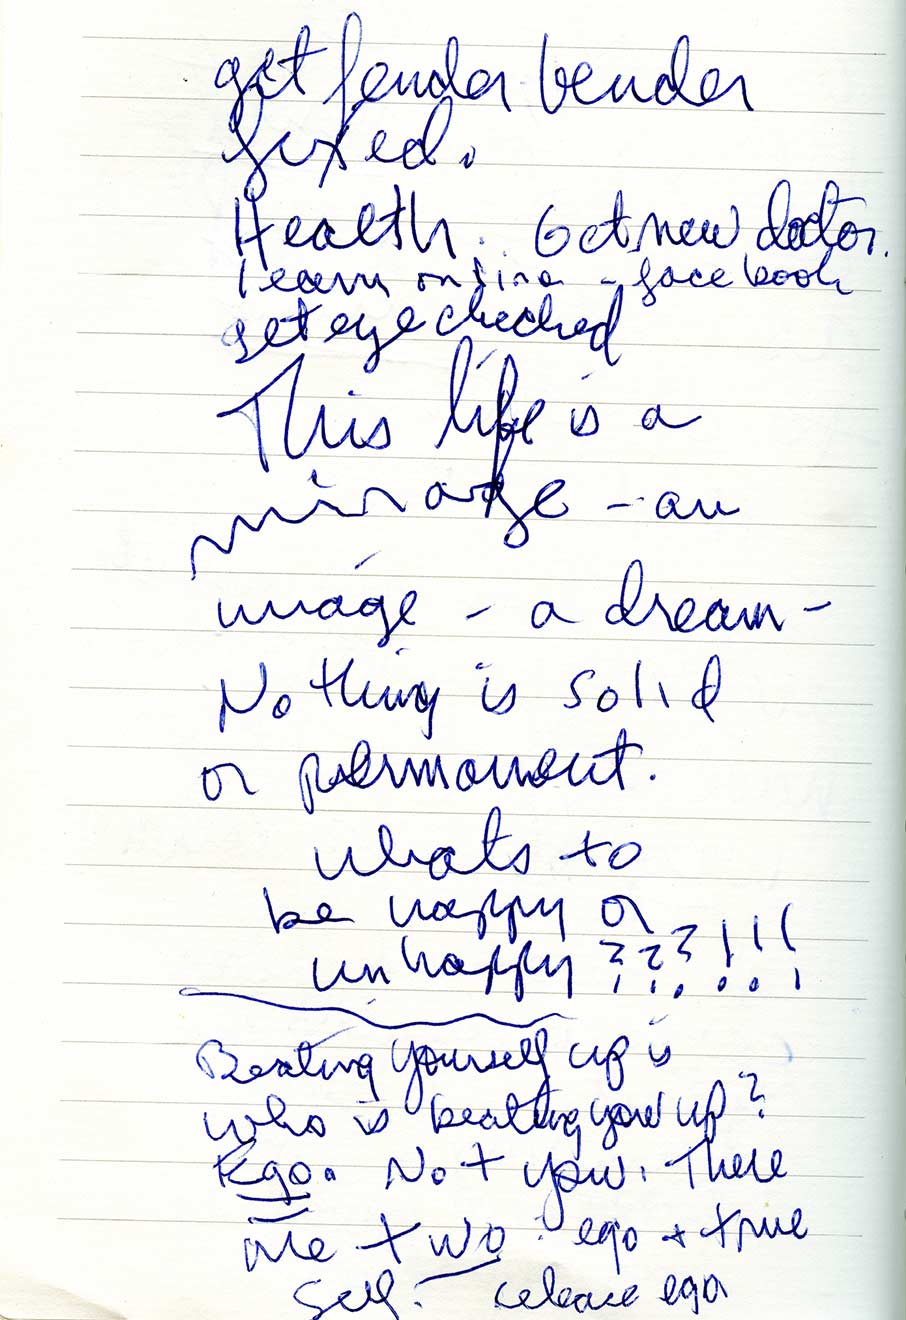 get fender bender
fixed.
Health. Get new doctor.
learn online - facebook
get eye checked
This life is a
mirage - an
image - a dream -
Nothing is solid
or permanent.
whats to
be happy or
unhappy ???!!!
Beating yourself up is
who is beating you up?
Ego. Not you. There
are two: ego + true
Self. release ego